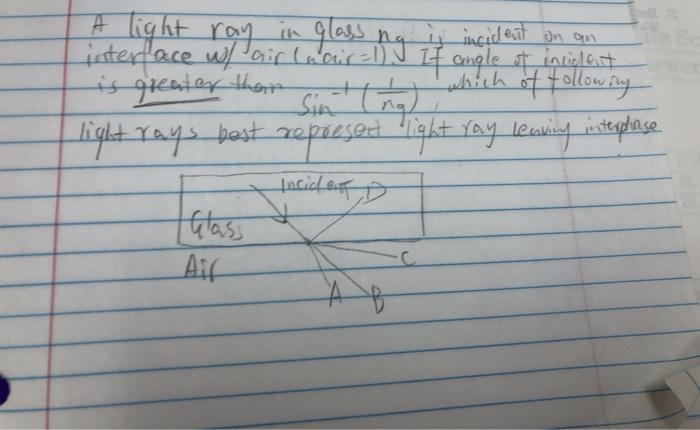 A light ray in glass ng is incident on an
interface w/ air (n air=1). If angle of incident
is greater than Sin⁻¹ (1/ng), which of following
light rays best represent light ray leaving interphase
Incident D
Glass
C
Air
A B